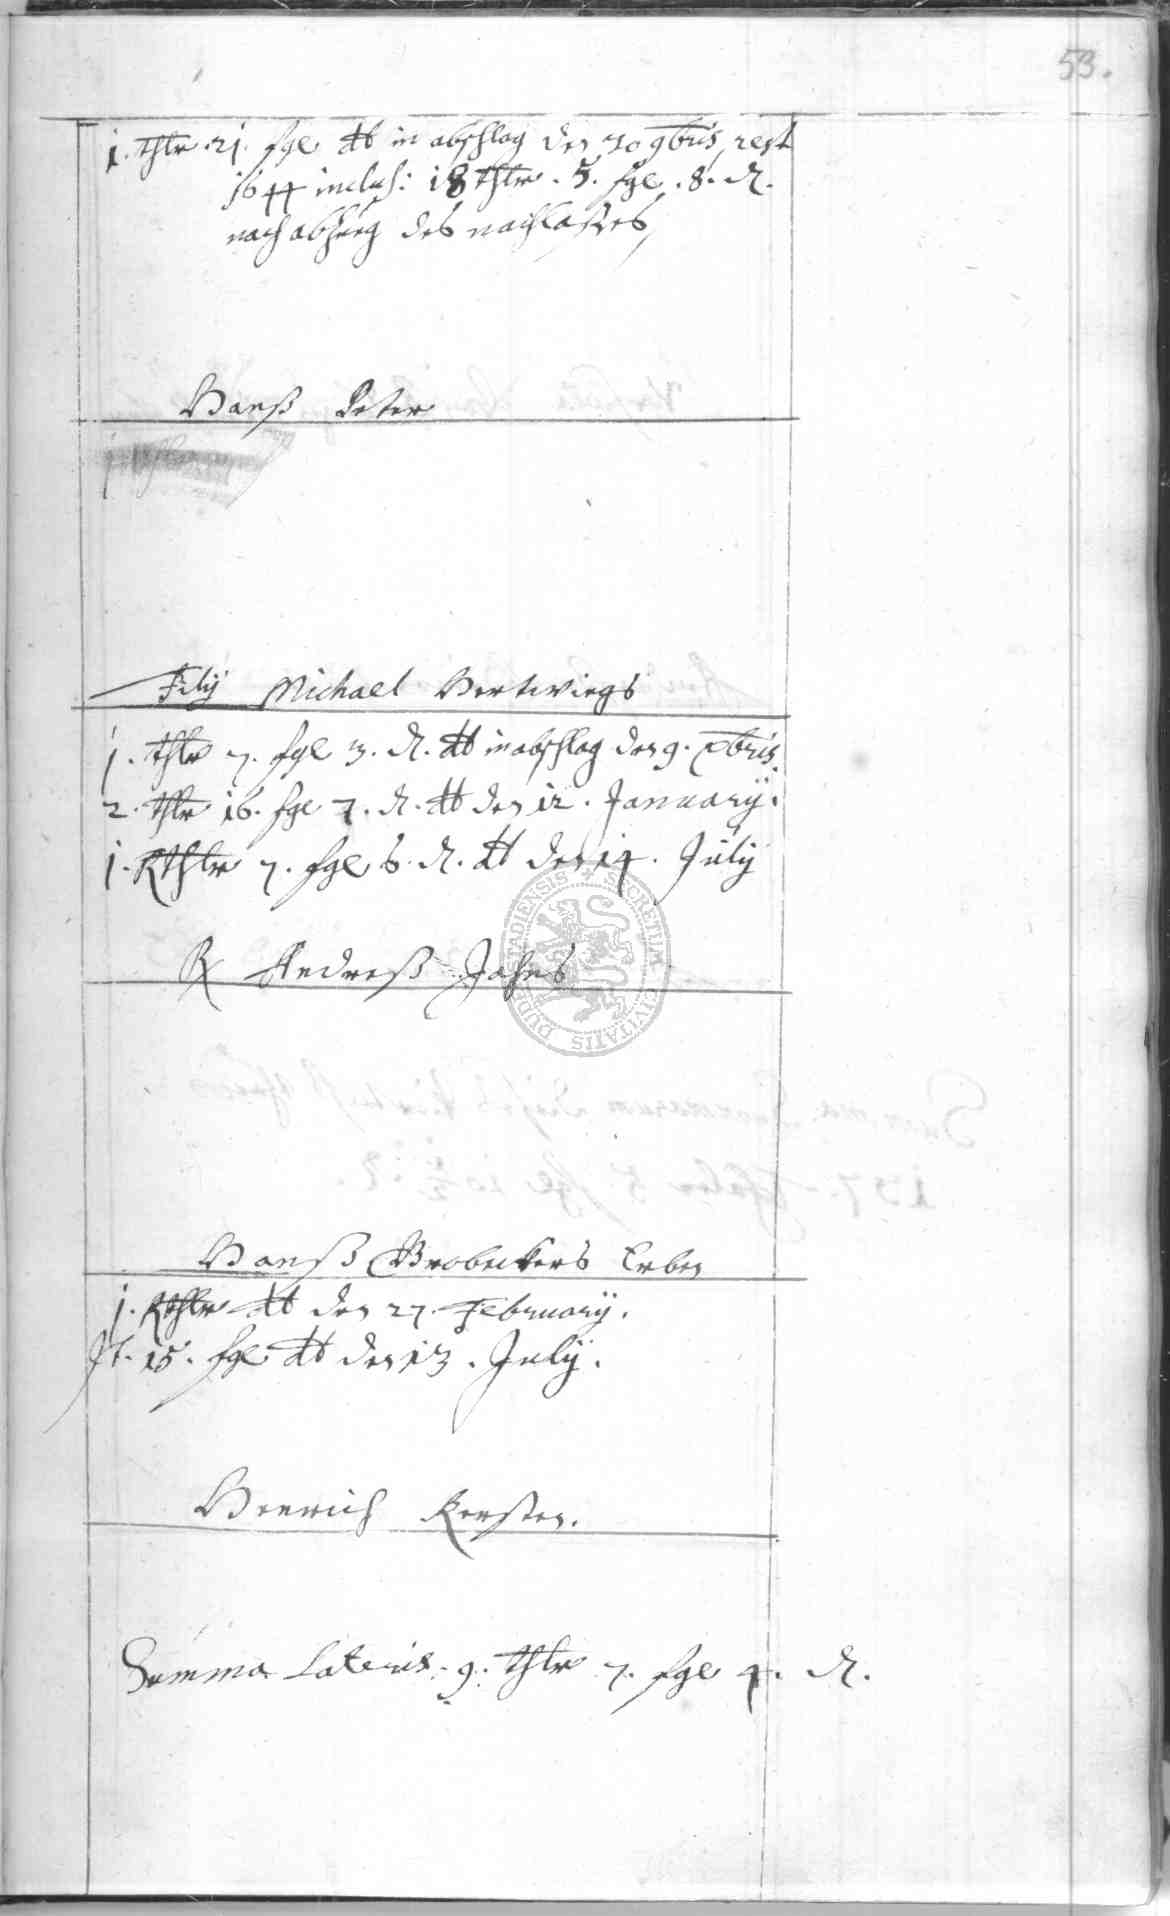 53.
1. thlr 21. sgl dt in abschlag den 30 9bris, rest
1644 inclus: 18 thlr. 5. sgl. 8. d.
nach abzug des nachlaßes,
Hanß Peter
Filij Michael Hertwigs
1. thlr 7. sgl 3. d. dt in abschlag den 9. Xbris.
2. thlr 16. sgl 7. d. dt den 12. January.
1. Rthlr 7. sgl 6. d. dt den 14. July
Andreß Jahns
Hanß Brobeckers Erben
1. Rthlr dt den 27. February.
It. 15. sgl dt den 13. July.
Henrich Kersten.
Summa Lateris. 9. thlr 7. sgl 4. d.
SECRETUM CIVITATIS DUDERSTADIENSIS